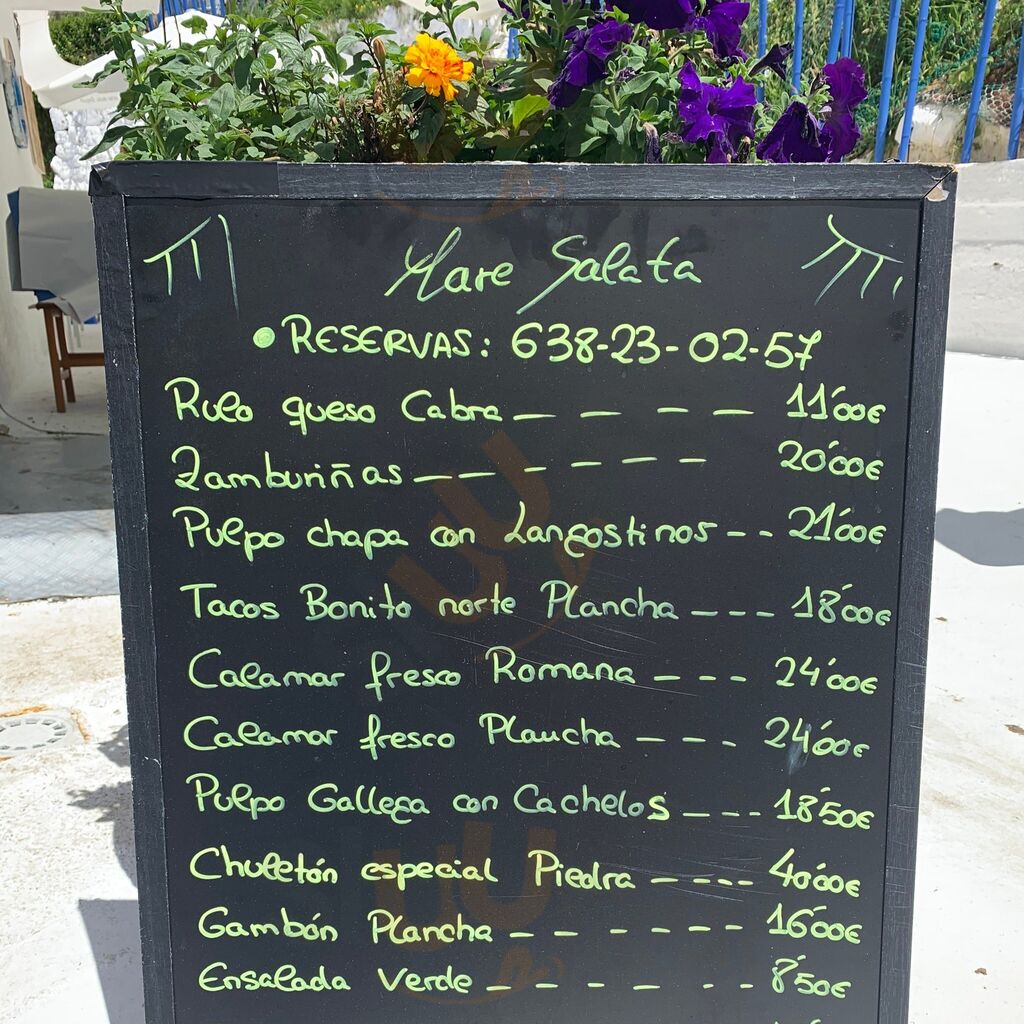 Mare Salata
• RESERVAS: 638-23-02-57
Rulo queso Cabra — — — — 11'00€
Zamburiñas — — - — — — 20'00€
Pulpo chapa con Langostinos - - 21'00€
Tacos Bonito norte Plancha - - - 18'00€
Calamar fresco Romana - - - 24'00€
Calamar fresco Plancha - - - 24'00€
Pulpo Gallega con Cachelos - - - 18'50€
Chuletón especial Piedra - - - - 40'00€
Gambón Plancha - - - - - - 16'00€
Ensalada Verde - - - - - - 8'50€